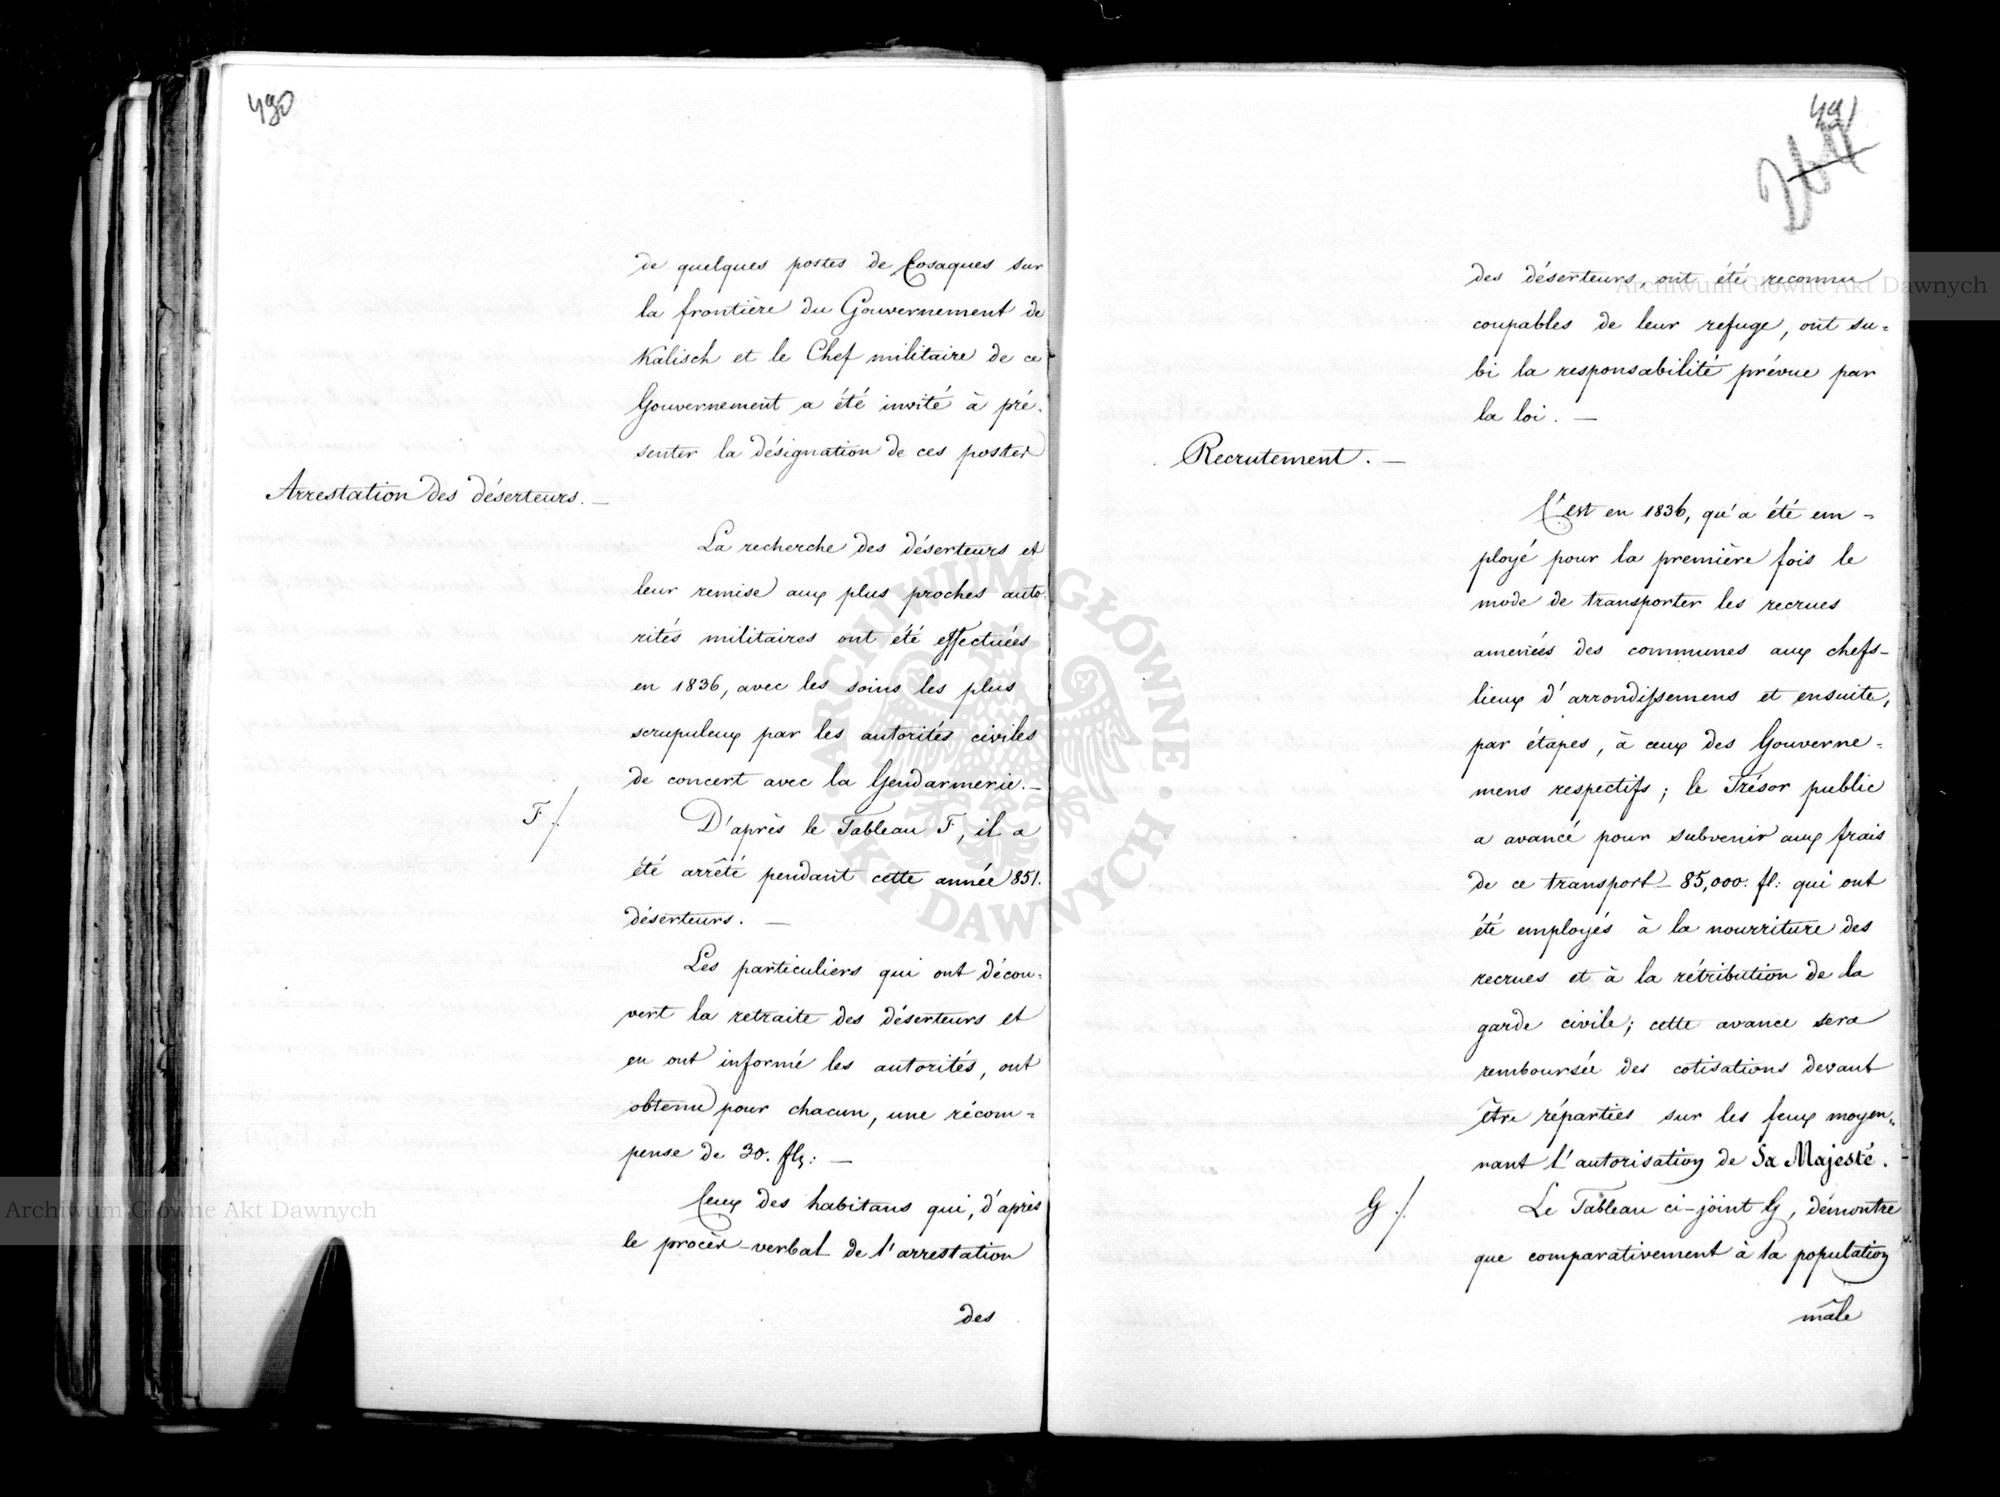 490
de quelques postes de Cosaques sur
la frontière du Gouvernement de
Kalisch et le Chef militaire de ce
Gouvernement a été invité à pré-
senter la désignation de ces postes
Arrestation des déserteurs. —
La recherche des déserteurs et
leur remise aux plus proches auto-
rités militaires ont été effectuées
en 1836, avec les soins les plus
scrupuleux par les autorités civiles
de concert avec la Gendarmerie. —
F /.
D'après le Tableau F, il a
été arrêté pendant cette année 851.
déserteurs. —
Les particuliers qui ont décou-
vert la retraite des déserteurs et
en ont informé les autorités, ont
obtenu pour chacun, une récom-
pense de 30. fls: —
Ceux des habitans qui, d'après
le procès-verbal de l'arrestation
des
491
des déserteurs, ont été reconnu
coupables de leur refuge, ont su-
bi la responsabilité prévue par
la loi. —
Recrutement. —
C'est en 1836, qu'a été em-
ployé pour la première fois le
mode de transporter les recrues
amenées des communes aux chefs-
lieux d'arrondissemens et ensuite,
par étapes, à ceux des Gouverne-
mens respectifs; le Trésor public
a avancé pour subvenir aux frais
de ce transport - 85,000. fl: qui ont
été employés à la nourriture des
recrues et à la rétribution de la
garde civile; cette avance sera
remboursée des cotisations devant
être réparties sur les feux moyen-
nant l'autorisation de Sa Majesté.
G /.
Le Tableau ci-joint G, démontre
que comparativement à la population
mâle
Archiwum Główne Akt Dawnych
Archiwum Główne Akt Dawnych
ARCHIWUM GŁÓWNE · AKT DAWNYCH ·